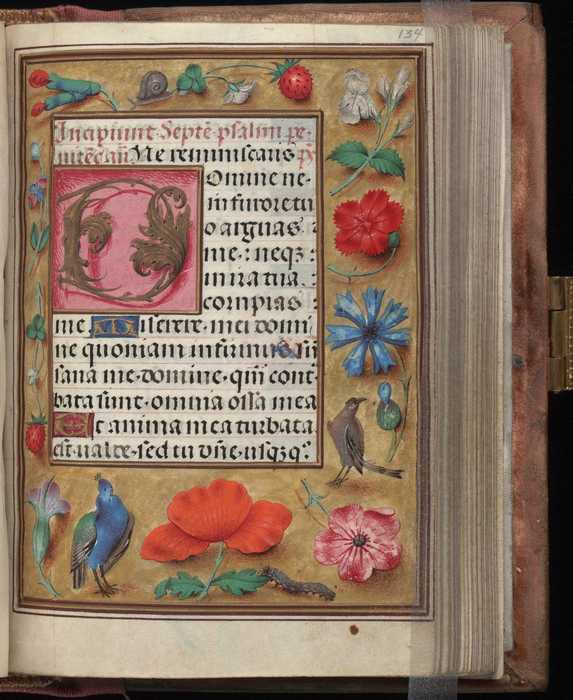 134
Incipiunt Septẽ psalmi pe⸗
nitẽc̃ añ Ne reminiscaris p̃s
Domine ne⸗
in furore tu
o arguas
me : neqꝫ :
in ira tua .
corripias :
me Miserere mei domi
ne quoniam infirmus sũ
sana me domine qm̃ cont
bata sunt omnia ossa mea
Et anima mea turbata
est ualde sed tu dñe usqꝫqͦ